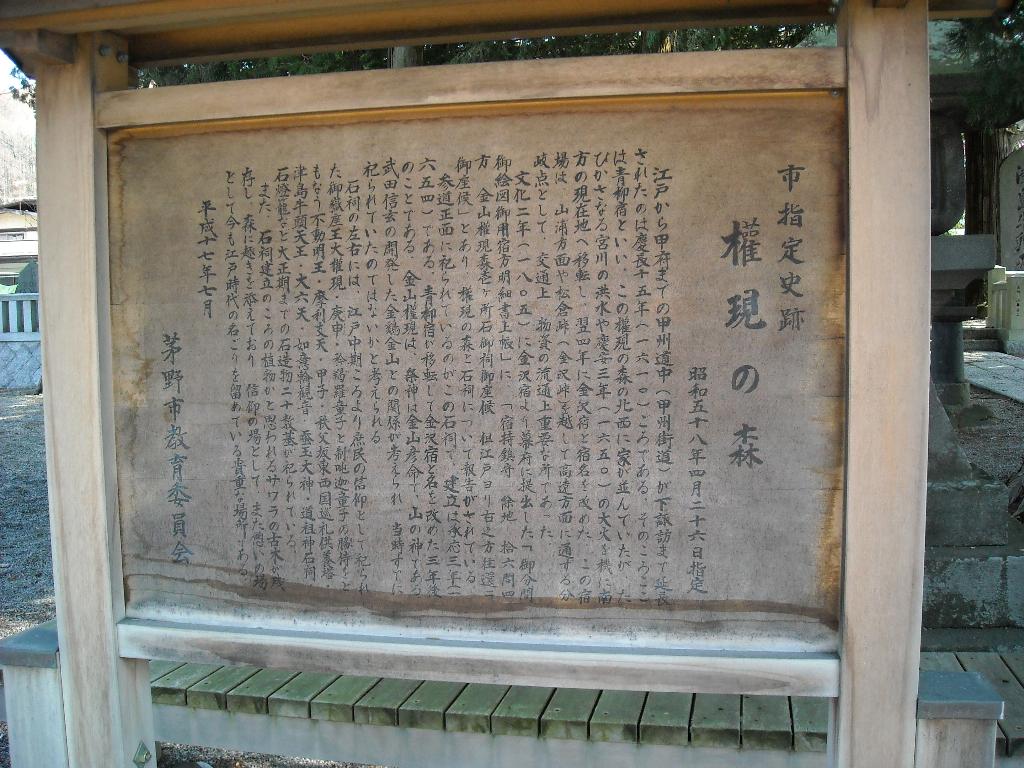 市指定史跡
權現の森
昭和五十八年四月二十六日指定
江戸から甲府までの甲州道中（甲州街道）が下諏訪まで延長
されたのは慶長十五年（一六一〇）ころである。そのころここ
は青柳宿といい、この権現の森の北西に家が並んでいたが、た
びかさなる宮川の洪水や慶安三年（一六五〇）の大火を機に南
方の現在地へ移転し、翌四年に金沢宿と宿名を改めた。この宿
場は、山浦方面や松倉峠（金沢峠）を越して高遠方面に通ずる分
岐点として、交通上、物資の流通上重要な所であった。
文化二年（一八〇五）に金沢宿より幕府に提出した「御分間
御絵図御用宿方明細書上帳」に、「宿持鎮守　除地　拾六間四
方　金山権現森壱ヶ所石御祠御座候　但江戸ヨリ右之方往還ニ
御座候」とあり、権現の森と石祠について報告がされている。
参道正面に祀られているのがこの石祠で、建立は承応三年（一
六五四）である。青柳宿が移転して金沢宿と名を改めた三年後
のことである。金山権現は、祭神は金山彦命で、山の神である。
武田信玄の開発した金鶏金山との関係が考えられ、当時すでに
祀られていたのではないかと考えられる。
石祠の左右には、江戸中期ころより庶民の信仰として祀られ
た御嶽座王大権現・庚申・矜羯羅童子と制吒迦童子の勝侍をと
もなう不動明王・摩利支天・甲子・秩父坂東西国巡礼供養塔
津島牛頭天王・大六天・如意輪観音・蚕玉大神・道祖神石祠
石燈籠など大正期までの石造物二十数基が祀られている。
また、石祠建立のころの植物かと思われるサワラの古木が残
存し、森に趣きを添えており、信仰の場として、また憩いの場
として今も江戸時代の名ごりを留めている貴重な場所である。
平成十七年七月
茅野市教育委員会